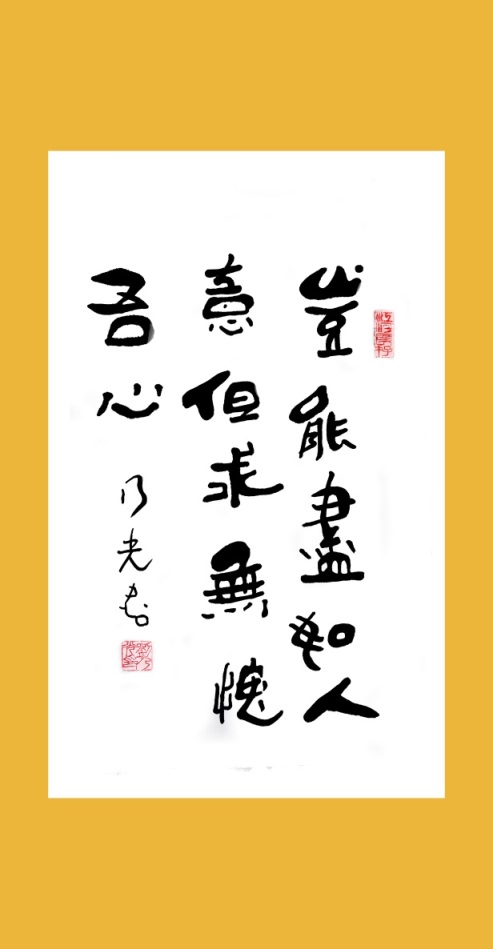 豈能盡如人
意但求無愧
吾心
乃光書